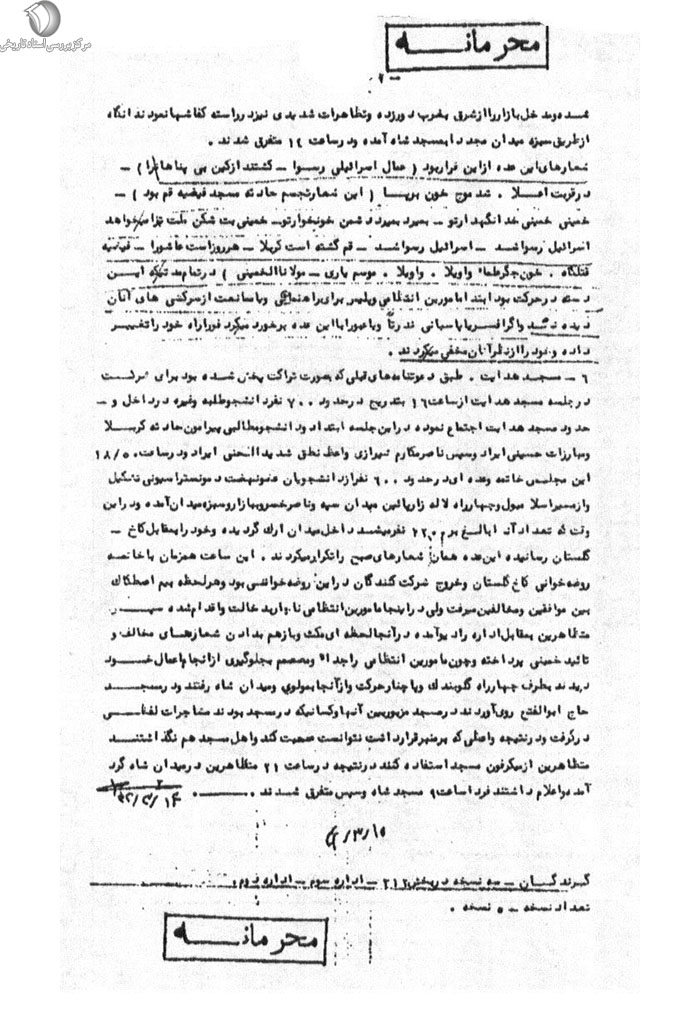 مرکز بررسی اسناد تاریخی
محرمانه
شده و مدخل بازار را از شرق بغرب در وزده وتظاهرات شدیدی نیز در راسته کفاشها نمودند انگاه
از طریق سبزه میدان مجددا بمسجد شاه آمده و در ساعت ۱۴ متفرق شدند .
شعارهای این عده از این قرار بود ( عمال اسرائیلی رسوا – کشتند از کین بی پناهانرا ) –
در قربت اعلا . شد موج خون برپا ( این شعار تجسم حادثه مسجد فیضیه قم بود ) –
خمینی خمینی خدا نگهدار تو – بمیرد بمیرد دشمن خونخوار تو – خمینی بت شکن ملت ترا میخواهد
اسرائیل رسوا شد – اسرائیل رسوا شد – قم گشته است کربلا – هر روز است عاشورا – فیضیه
قتلگاه . خون جگرها واویلا . واویلا . موسم یاری – مولانا الخمینی ) در تمام مدتیکه این
دسته در حرکت بودابند امامورین انتظامی وپلیس برای راهنمائی ویاممانعت از سرکشی های آنان
دیده نشد واگر افسر یا پاسبانی ندرتاً ویا عبورا با این عده برخورد میکرد فورا راه خود را تغییر
داده وخود را از نظر آنان مخفی میکردند .
۶ – مسجد هدایت . طبق دعوتنامه های قبلی که بصورت تراکت پخش شده بود برای شرکت
در جلسه مسجد هدایت از ساعت ۱۶ بتدریج در حدود ۷۰۰ نفر دانشجو طلبه وغیره در داخل و –
حدود مسجد هدایت اجتماع نموده در این جلسه ابتدا دو دانشجو مطالبی پیرامون حادثه کربلا
ومبارزات حسینی ایراد وسپس ناصر مکارم شیرازی واعظ نطق شدید اللحنی ایراد ودر ساعت ۱۸/۵
این مجلس خاتمه وعده ای در حدود ۶۰۰ نفر از دانشجویان عضو نهضت دمونستراسیونی تشکیل
واز مسیر اسلامبول وچهارراه لاله زار پائین میدان سپه وناصرخسرو بازار وسبزه میدان آمده ودر این
وقت که تعداد آنها بالغ بر ۱۲۰۰ نفر میشد داخل میدان ارک گردیده وخود را بمقابل کاخ –
گلستان رسانیده این عده همان شعارهای صبح را تکرار میکردند . این ساعت همزمان با خاتمه
روضه خوانی کاخ گلستان وخروج شرکت کنندگان در این روضه خوانی بود وهر لحظه بیم اصطکاک
بین موافقین ومخالفین میرفت ولی در اینجا مامورین انتظامی ناچار به دخالت واقدام شده
متظاهرین بمقابل اداره رادیو آمده در آنجا لحظه ای مکث وبازهم بدادن شعارهای مخالف و
تائید خمینی پرداخته وچون مامورین انتظامی را جدا ومصمم بجلوگیری از انجام اعمال خود
دیدند بطرف چهارراه گلوبندک وپاچنار حرکت واز آنجا بمولوی ومیدان شاه رفتند ودر مسجد
حاج ابوالفتح روی آوردند در مسجد مزبور بین آنها وکسانیکه در مسجد بودند مشاجرات لفظی
در گرفت ودر نتیجه واعظی که بر منبر قرار داشت نتوانست صحبت کند واهل مسجد هم نگذاشتند
متظاهرین از میکرفون مسجد استفاده کنند در نتیجه در ساعت ۲۱ متظاهرین در میدان شاه گرد
آمده واعلام داشتند فردا ساعت ۹ مسجد شاه وسپس متفرق شدند .
۴۲/۳/۱۴
۴۲/۳/۱۵
گیرندگان – سه نسخه در بخش ۲۱۲ – اداره سوم – اداره دوم .
تعداد نسخه – ۵ نسخه .
محرمانه